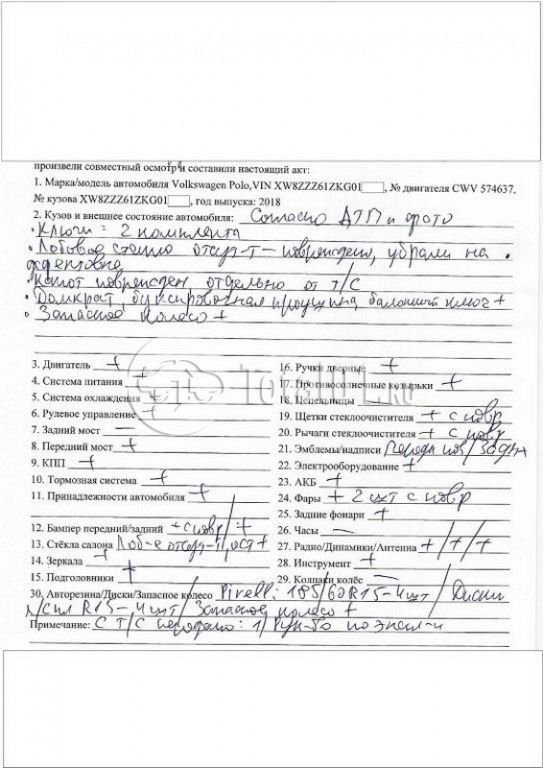 произвели совместный осмотр и составили настоящий акт:
1. Марка/модель автомобиля Volkswagen Polo,VIN XW8ZZZ61ZKG01, № двигателя CWV 574637,
№ кузова XW8ZZZ61ZKG01, год выпуска: 2018
2. Кузов и внешнее состояние автомобиля: Согласно ДТП и фото
• Ключи: 2 комплекта
• Лобовое стекло отсут-т – повреждено, убрали на
• Капот поврежден, отдельно от т/с
• Домкрат, буксировочная проушина, балонный ключ +
• Запасное колесо +
3. Двигатель +
4. Система питания +
5. Система охлаждения +
6. Рулевое управление +
7. Задний мост —
8. Передний мост +
9. КПП +
10. Тормозная система +
11. Принадлежности автомобиля +
12. Бампер передний/задний + с повр/ +
13. Стёкла салона Лоб-е отсут-т, ост +
14. Зеркала +
15. Подголовники +
16. Ручки дверные +
17. Противосолнечные козырьки +
18. Пепельницы
19. Щетки стеклоочистителя + с повр
20. Рычаги стеклоочистителя + с повр
21. Эмблемы/надписи
22. Электрооборудование +
23. АКБ +
24. Фары + 2 шт с повр
25. Задние фонари +
26. Часы —
27. Радио/Динамики/Антенна +/+/+
28. Инструмент +
29. Колпаки колёс —
30. Авторезина/Диски/Запасное колесо Pirelli: 185/60R15-4шт/ Диски
R15-4шт/ Запасное колесо +
Примечание: С т/с передано: 1/ Рук-во по экспл-и